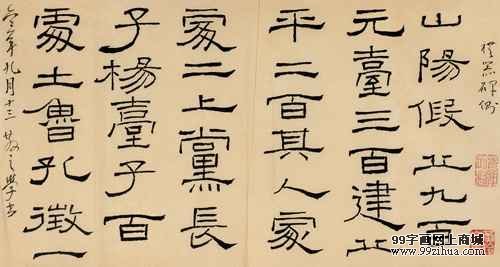 禮器碑側
山陽假丘九百
元臺三百建丘
平二百其人處
處二上黨長
子楊臺子百
處土魯孔徵一
年九月十三
99字画网上商城
www.99zihua.com